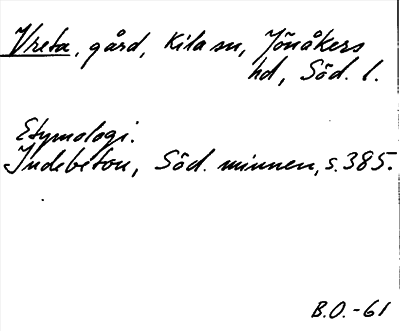 Vreta, gård, Kila sn, Jönåkers
hd, Söd. l.
Etymologi.
Indebetou, Söd. minnen, s. 385.
B.O.-61